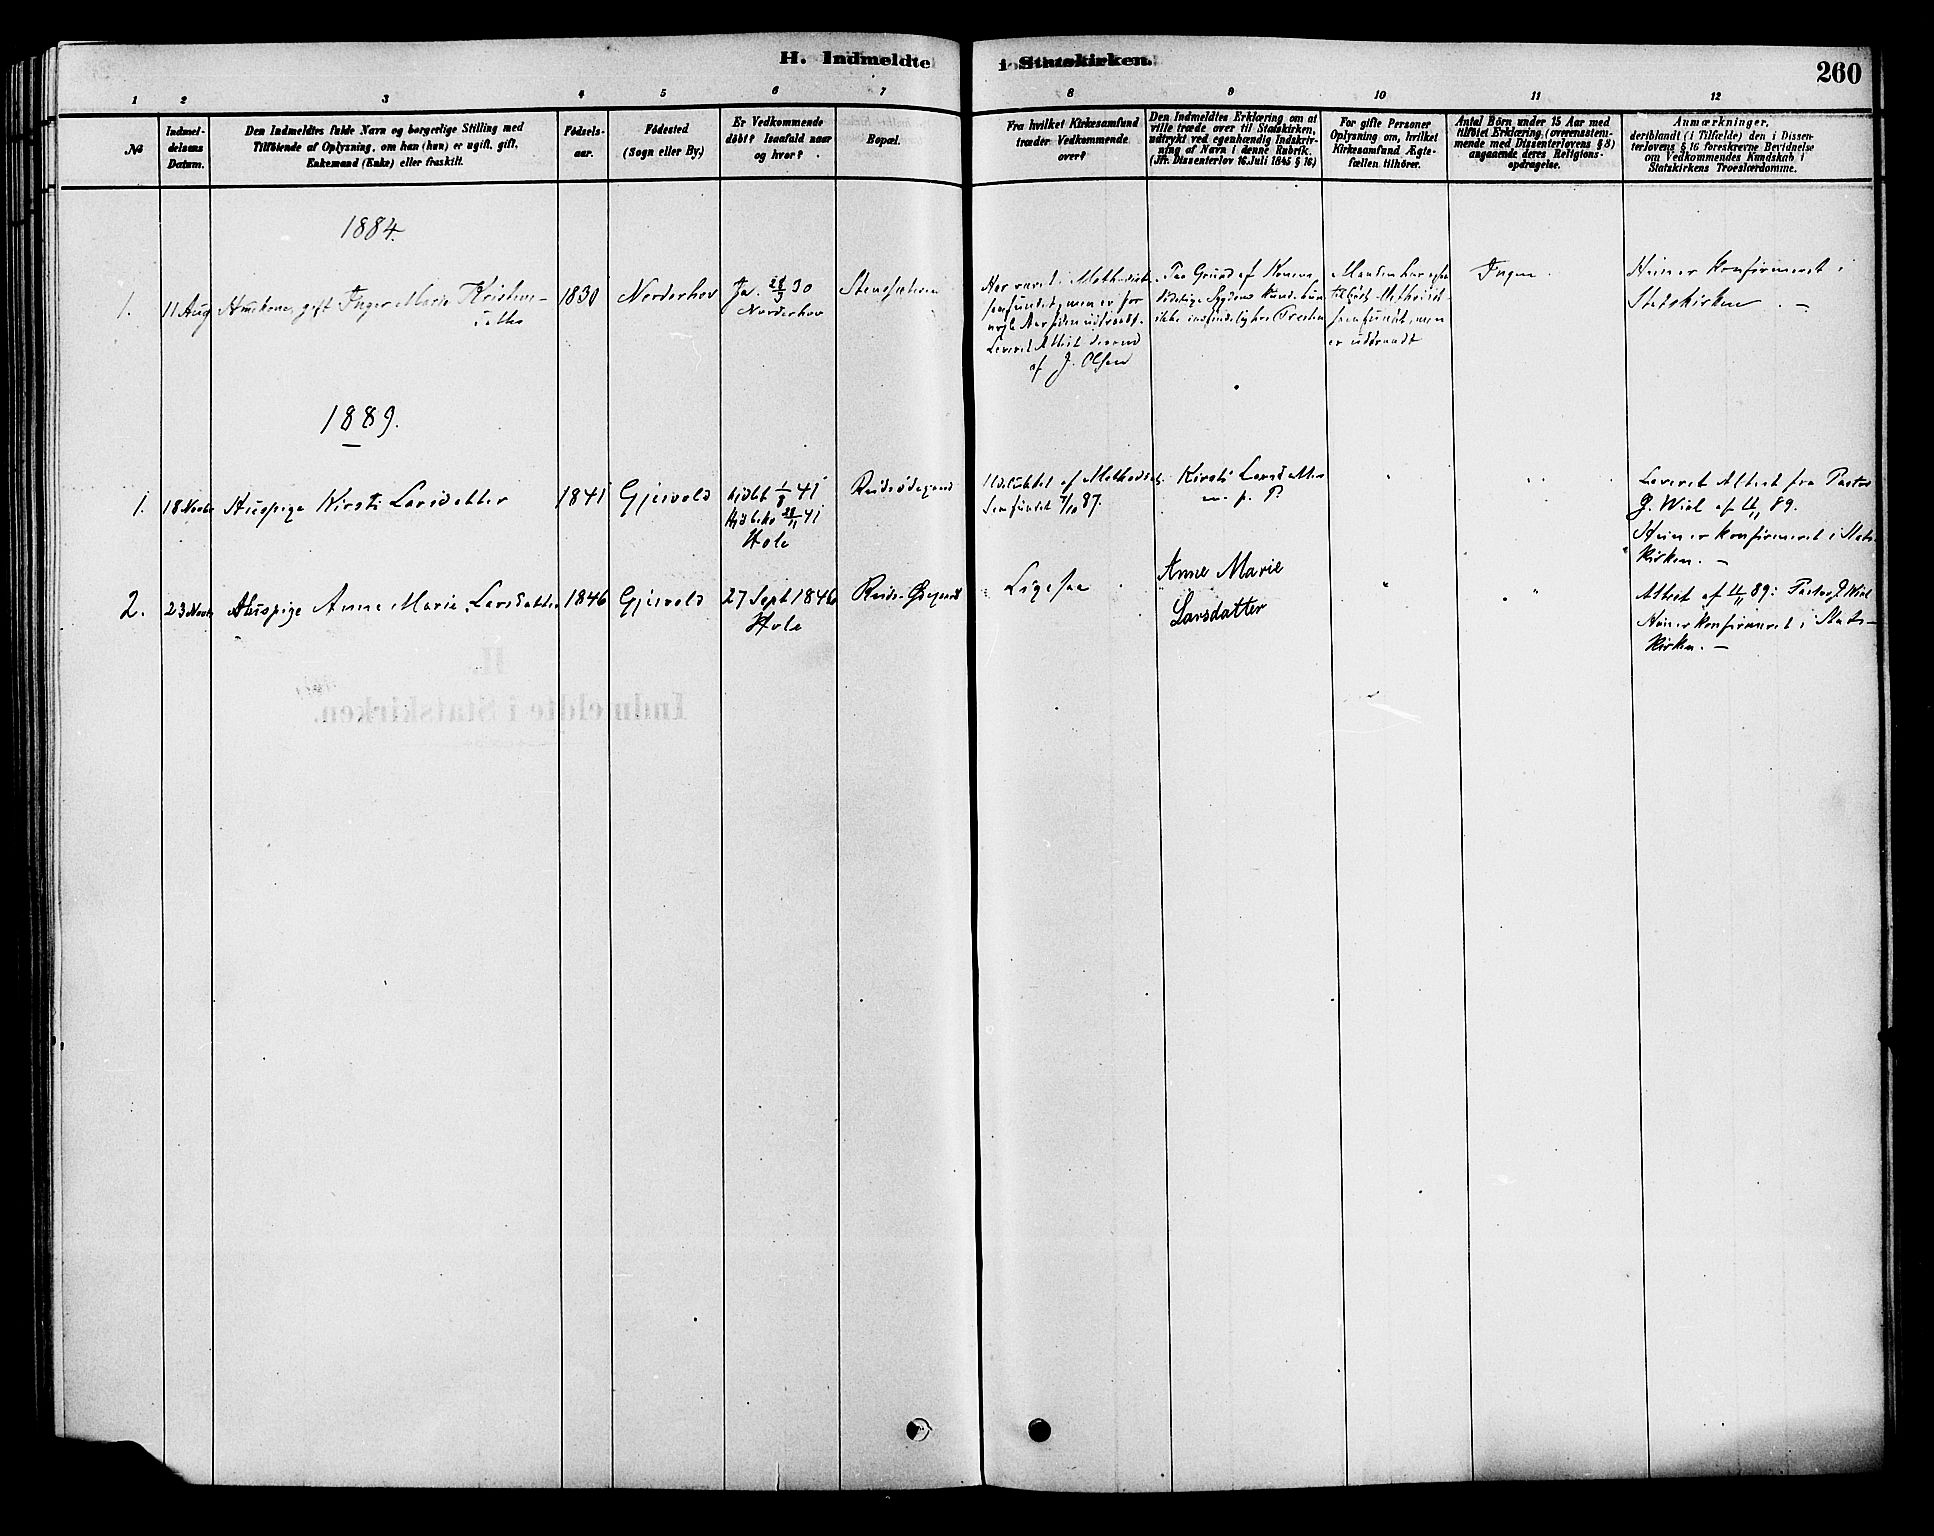 H. Indmeldte i Statskirken.
260
1 2 3 4 5 6 7 8 9 10 11 12
№
Indmel-
delsens
Datum.
Den Indmeldtes fulde Navn og borgerlige Stilling med
Tilföiende af Oplysning, om han (hun) er ugift, gift,
Enkemand (Enke) eller fraskilt.
Födsels-
aar.
Födested
(Sogn eller By.)
Er Vedkommende
döbt? Isaafald naar
og hvor?
Bopæl.
Fra hvilket Kirkesamfund
træder Vedkommende
over?
Den Indmeldtes Erklæring om at
ville træde over til Statskirken,
udtrykt ved egenhændig Indskriv-
ning af Navn i denne Rubrik.
(Jfr. Dissenterlov 16. Juli 1845 § 16)
For gifte Personer
Oplysning om, hvilket
Kirkesamfund Ægte-
fællen tilhörer.
Antal Börn under 15 Aar med
tilföiet Erklæring (overensstem-
mende med Dissenterlovens § 8)
angaaende deres Religions-
opdragelse.
Anmærkninger,
deriblandt (i Tilfælde) den i Dissen-
terlovens § 16 foreskrevne Bevidnelse
om Vedkommendes Kundskab i
Statskirkens Troeslærdomme.
1884.
1.
11 Aug
Huskone, gift Inger Marie Kristens-
datter
1830
Norderhov
Ja. 28/3 30
Norderhov
Har været i Methodist-
samfundet, men er for
nogle Aar siden udtraadt.
Leveret Attest derom
af J. Olsen
Paa Grund af
Sygdom kunde hun
ikke indfinde sig hos Presten
Manden har ogsaa
tilhørt Methodist-
samfundet, men
er udtraadt
Ingen.
Hun er konfirmeret i
Statskirken. —
1889.
1.
18 Novbr
Huspige Kirsti Larsdatter
1841
Gjesvold
Hjdbt 1/8 41
28/11 41
Hole
Udslettet af Methodist-
Samfundet 7/10 87.
Kirsti Larsdatter
m. p. P.
"
"
Leveret Attest fra Pastor
J. Wiel af 11/11 89.
Hun er konfirmeret i Stats-
kirken. —
2.
23 Novbr
Huspige Anne Marie Larsdatter
1846
Gjesvold
27 Sept 1846
Hole
Ligesaa
Anne Marie
Larsdatter
"
"
Attest af 11/11 89: Pastor J. Wiel
Hun er konfirmeret i Stats-
kirken. —
H.
Indmeldte i Statskirken.